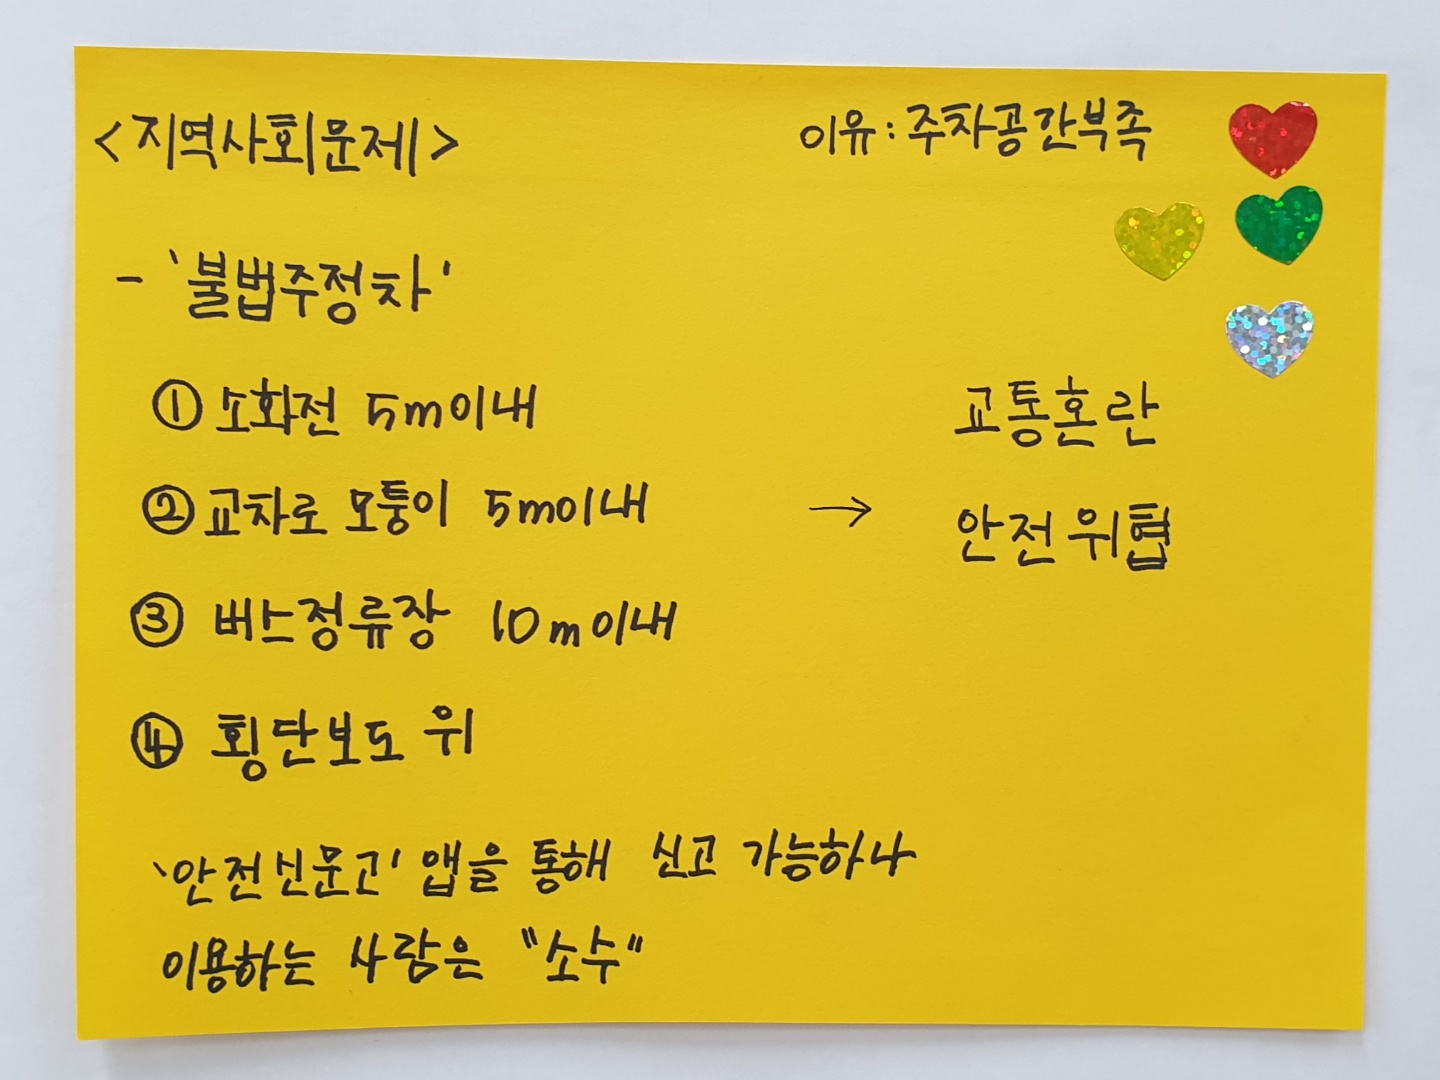 <지역사회문제>
이유: 주차공간부족
- '불법주정차'
① 소화전 5m이내
② 교차로 모퉁이 5m이내
③ 버스정류장 10m이내
④ 횡단보도 위
→
교통혼란
안전위협
'안전신문고' 앱을 통해 신고 가능하나
이용하는 사람은 "소수"